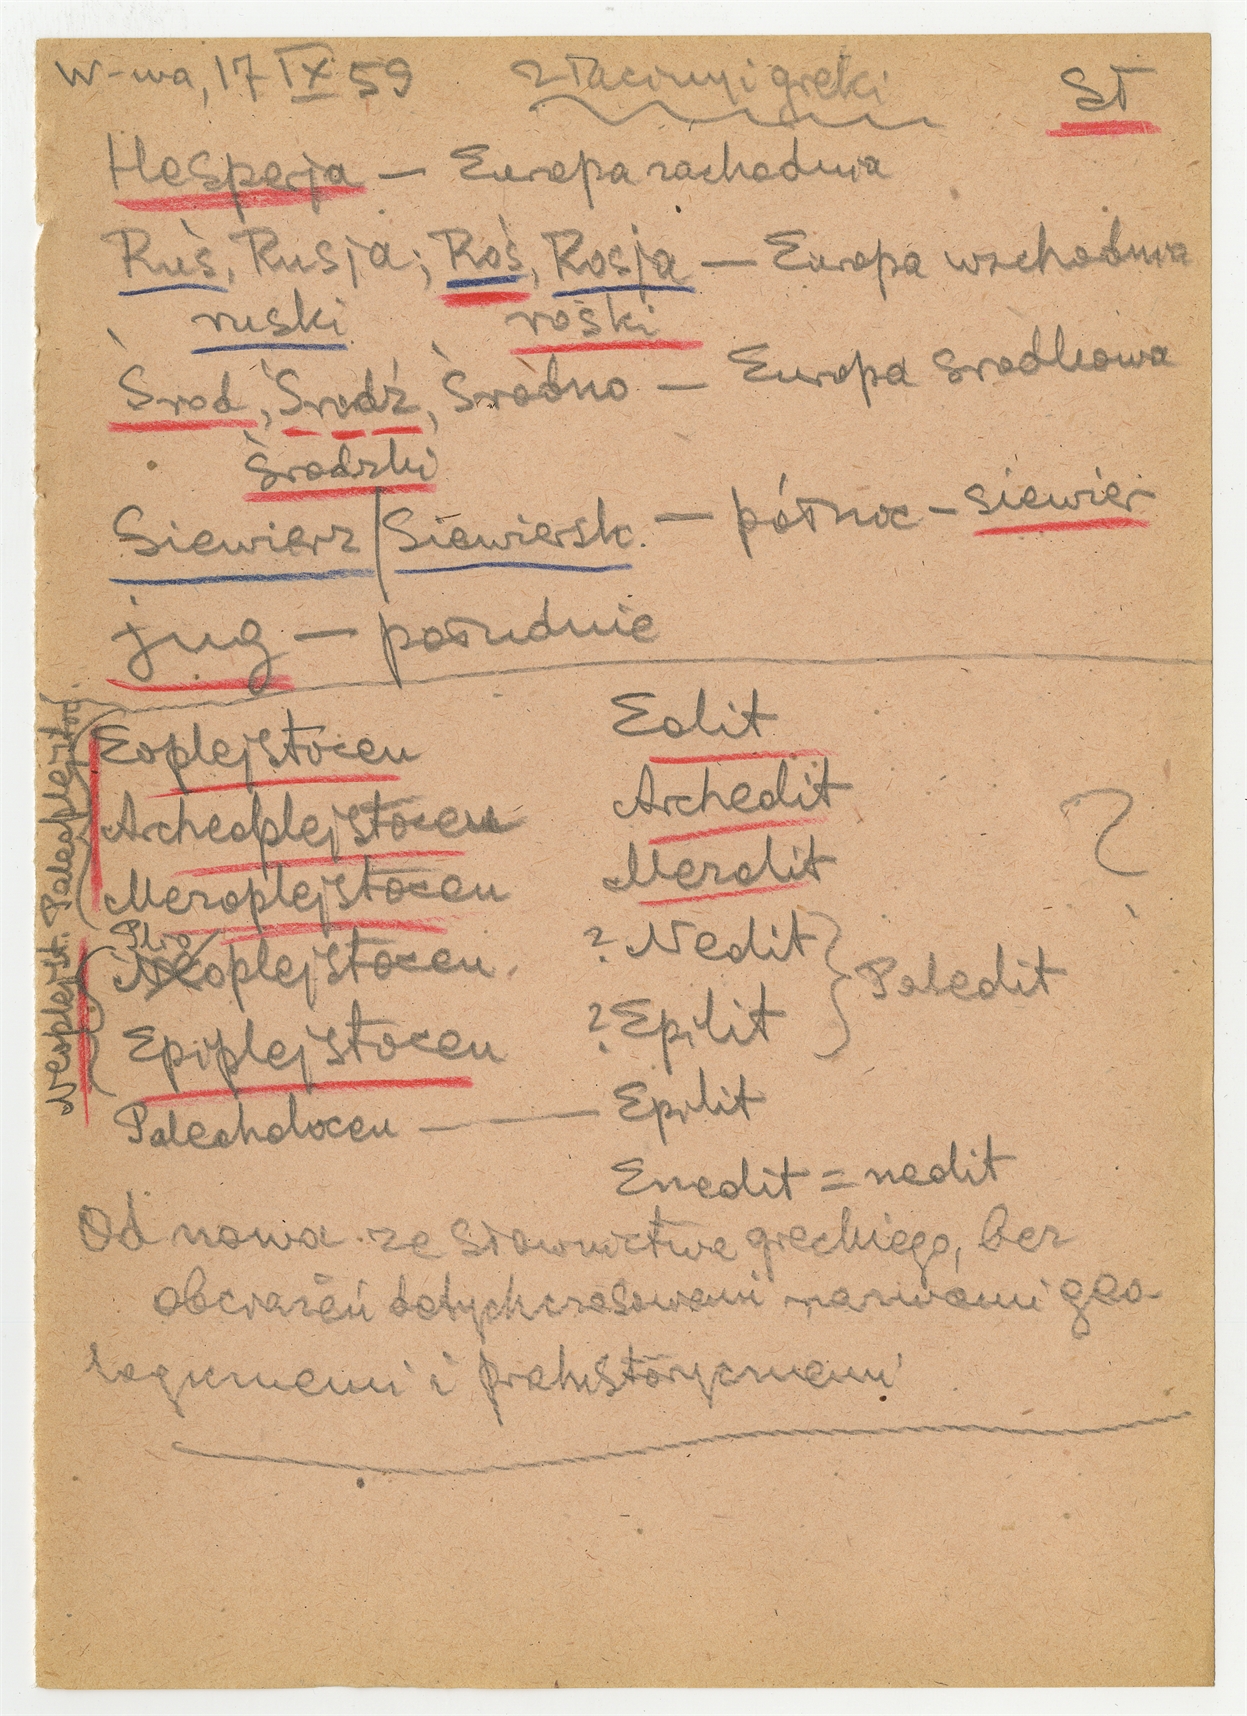 W-wa, 17 IX 59 z łaciny i greki SŁ
Hesperja — Europa zachodnia
Ruś, Rusja; Roś, Rosja — Europa wschodnia
ruski rośki
Środ, Śródź, Śródno — Europa środkowa
Środzki
Siewierz / Siewiersk — północ – siewier
jug — południe
Paleoplejstoc.
Eoplejstocen Eolit
Archeoplejstocen Archeolit
Meroplejstocen Merolit
?
Neoplejst.
Plio/oplejstocen. ? Neolit } Paleolit
Epiplejstocen ? Epilit
Paleoholocen — Epilit
Eneolit = neolit
Od nowa ze słownictwa greckiego, bez
obciążeń dotychczasowemi nazwami geo-
logicznemi i prahistorycznemi